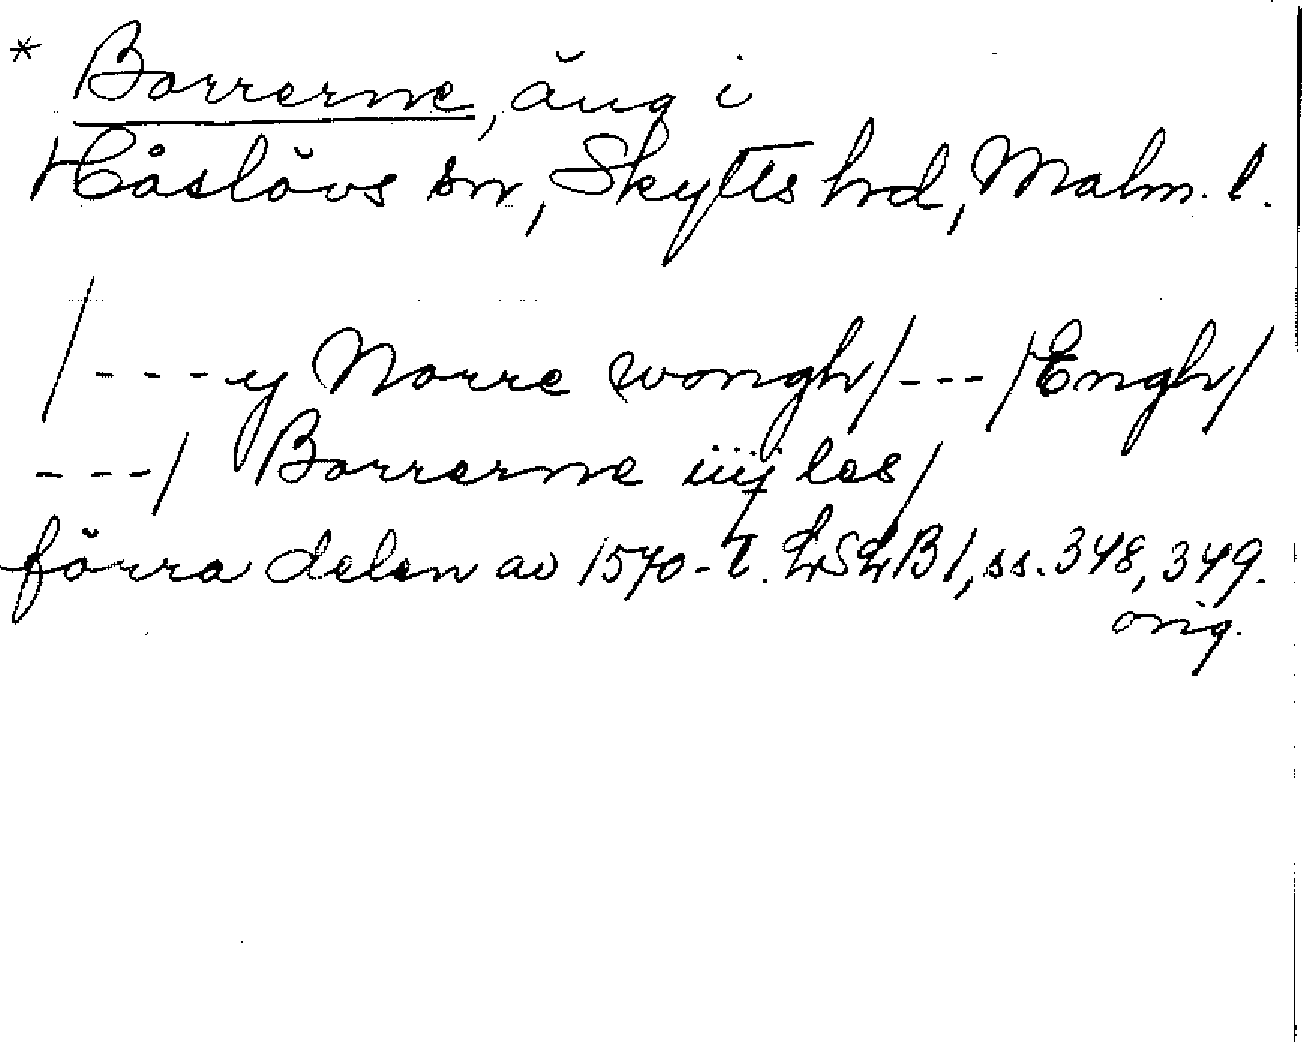 * Borrerne, äng i
Håslövs sn, Skytts hrd, Malm. l.
/---y Norre wongh/---/Engh/
---/ Borrerne iiij les/
förra delen av 1570-t. LSLB1, ss. 348, 349.
orig.